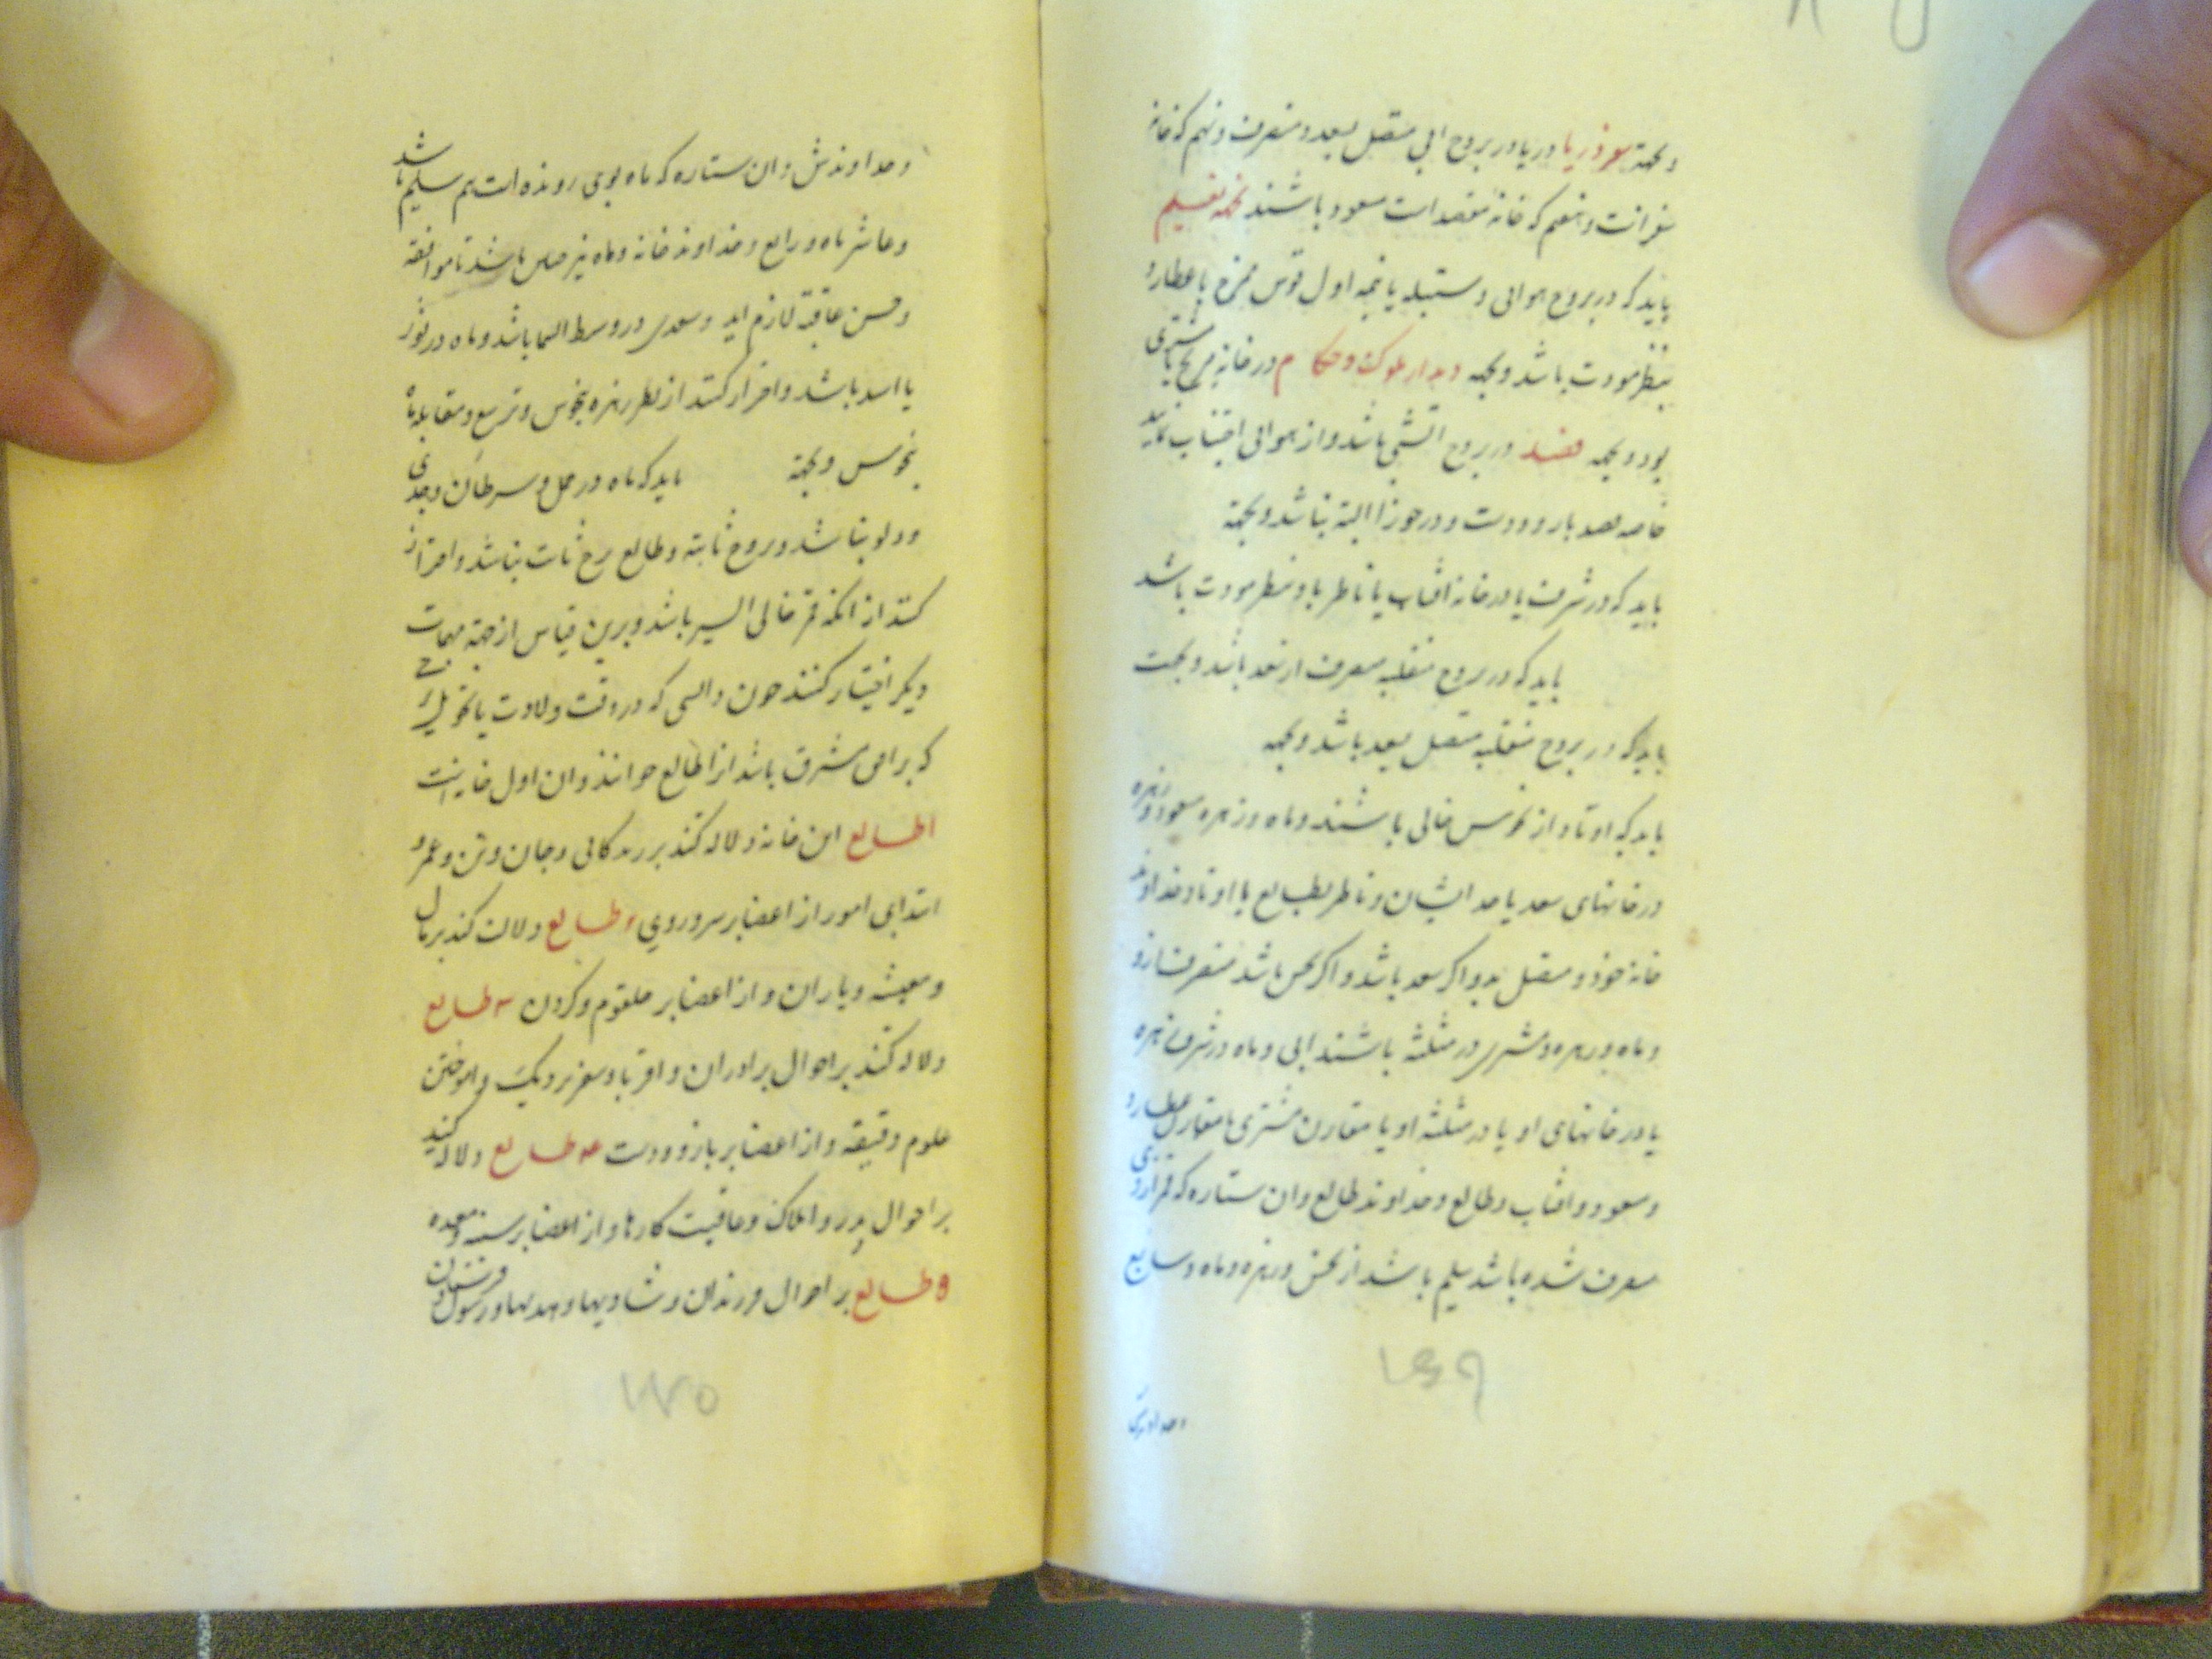 وبجهة سفر دریا در یا در بروج ابی متصل بسعد و منصرف و نهم که خانه
سفر است و هفتم که خانه مقصد است مسعود باشند بجهة تعلیم
باید که در بروج هوائی و سنبله یا نیمه اول قوس ممزج با عطارد
بنظر مودت باشد وبجهة دیدار ملوک و حکام در خانه مریخ یا مشتری
بود وبجهة فصد در بروج اتشی باشد و از هوائی اجتناب نماید
خاصه فصد بازو و دست و در جوزا البته نباشد وبجهة
باید که در شرف یا در خانه افتاب یا ناظر باو بنظر مودت باشد
باید که در بروج منقلبه منصرف از سعد باشد و بجهت
باید که در بروج منقلبه متصل بسعد باشد وبجهة
باید که اوتاد از نحوس خالی باشند و ماه و زهره مسعود و زهره
در خانهای سعد یا حد ایشان و ناظر بطالع با اوتاد و خداوند
خانه خود و متصل بدو اگر سعد باشد و اگر نحس باشد منصرف ازو
و ماه و زهره و مشتری در مثلثه باشند ابی و ماه در شرف زهره
یا در خانهای او یا در مثلثه او یا مقارن مشتری یا مقارن عطارد
و سعود و افتاب و طالع و خداوند طالع وان ستاره که قمر ازو
منصرف شده باشد سلیم باشد از نحس و زهره و ماه و سابع
۱۴۹
وخداوندش
وخداوندش وان ستاره که ماه بوی رونده است هم سلیم باشد
وعاشر ماه و رابع و خداوند خانه و ماه نیز باشد تا موافقة
و حسن عاقبة لازم اید و سعدی در وسط السما باشد و ماه در ثور
یا اسد باشد و احتراز کنند از نظر زهره بنحوس و تربیع و مقابله ماه
بنحوس وبجهة باید که ماه در حمل و سرطان و جدی
و دلو نباشد و بروج ثابته و طالع برج ثابت نباشد و احتراز
کنند از انکه قمر خالی السیر باشد و برین قیاس از جهة مهمات
دیگر اختیار کنند چون دانستی که در وقت ولادت یا تحویل برج
که بر افق مشرق باشد انرا طالع خوانند وان اول خانه است
ا طالع این خانه دلالة کند بر زندگانی وجان وتن و عمر و
ابتدای امور از اعضا بر سر و روی ۲ طالع دلالت کند بر مال
و معیشه و یاران و از اعضا بر حلقوم و گردن ۳ طالع
دلالة کند بر احوال برادران و اقربا و سفر نزدیک و اموختن
علوم دقیقه و از اعضا بر بازو و دست ۴ طالع دلالة کند
بر احوال پدر و املاک و عاقبت کارها و از اعضا بر سینه و معده
۵ طالع بر احوال فرزندان و شادیها و هدیها و رسول فرستادن
۱۷۵